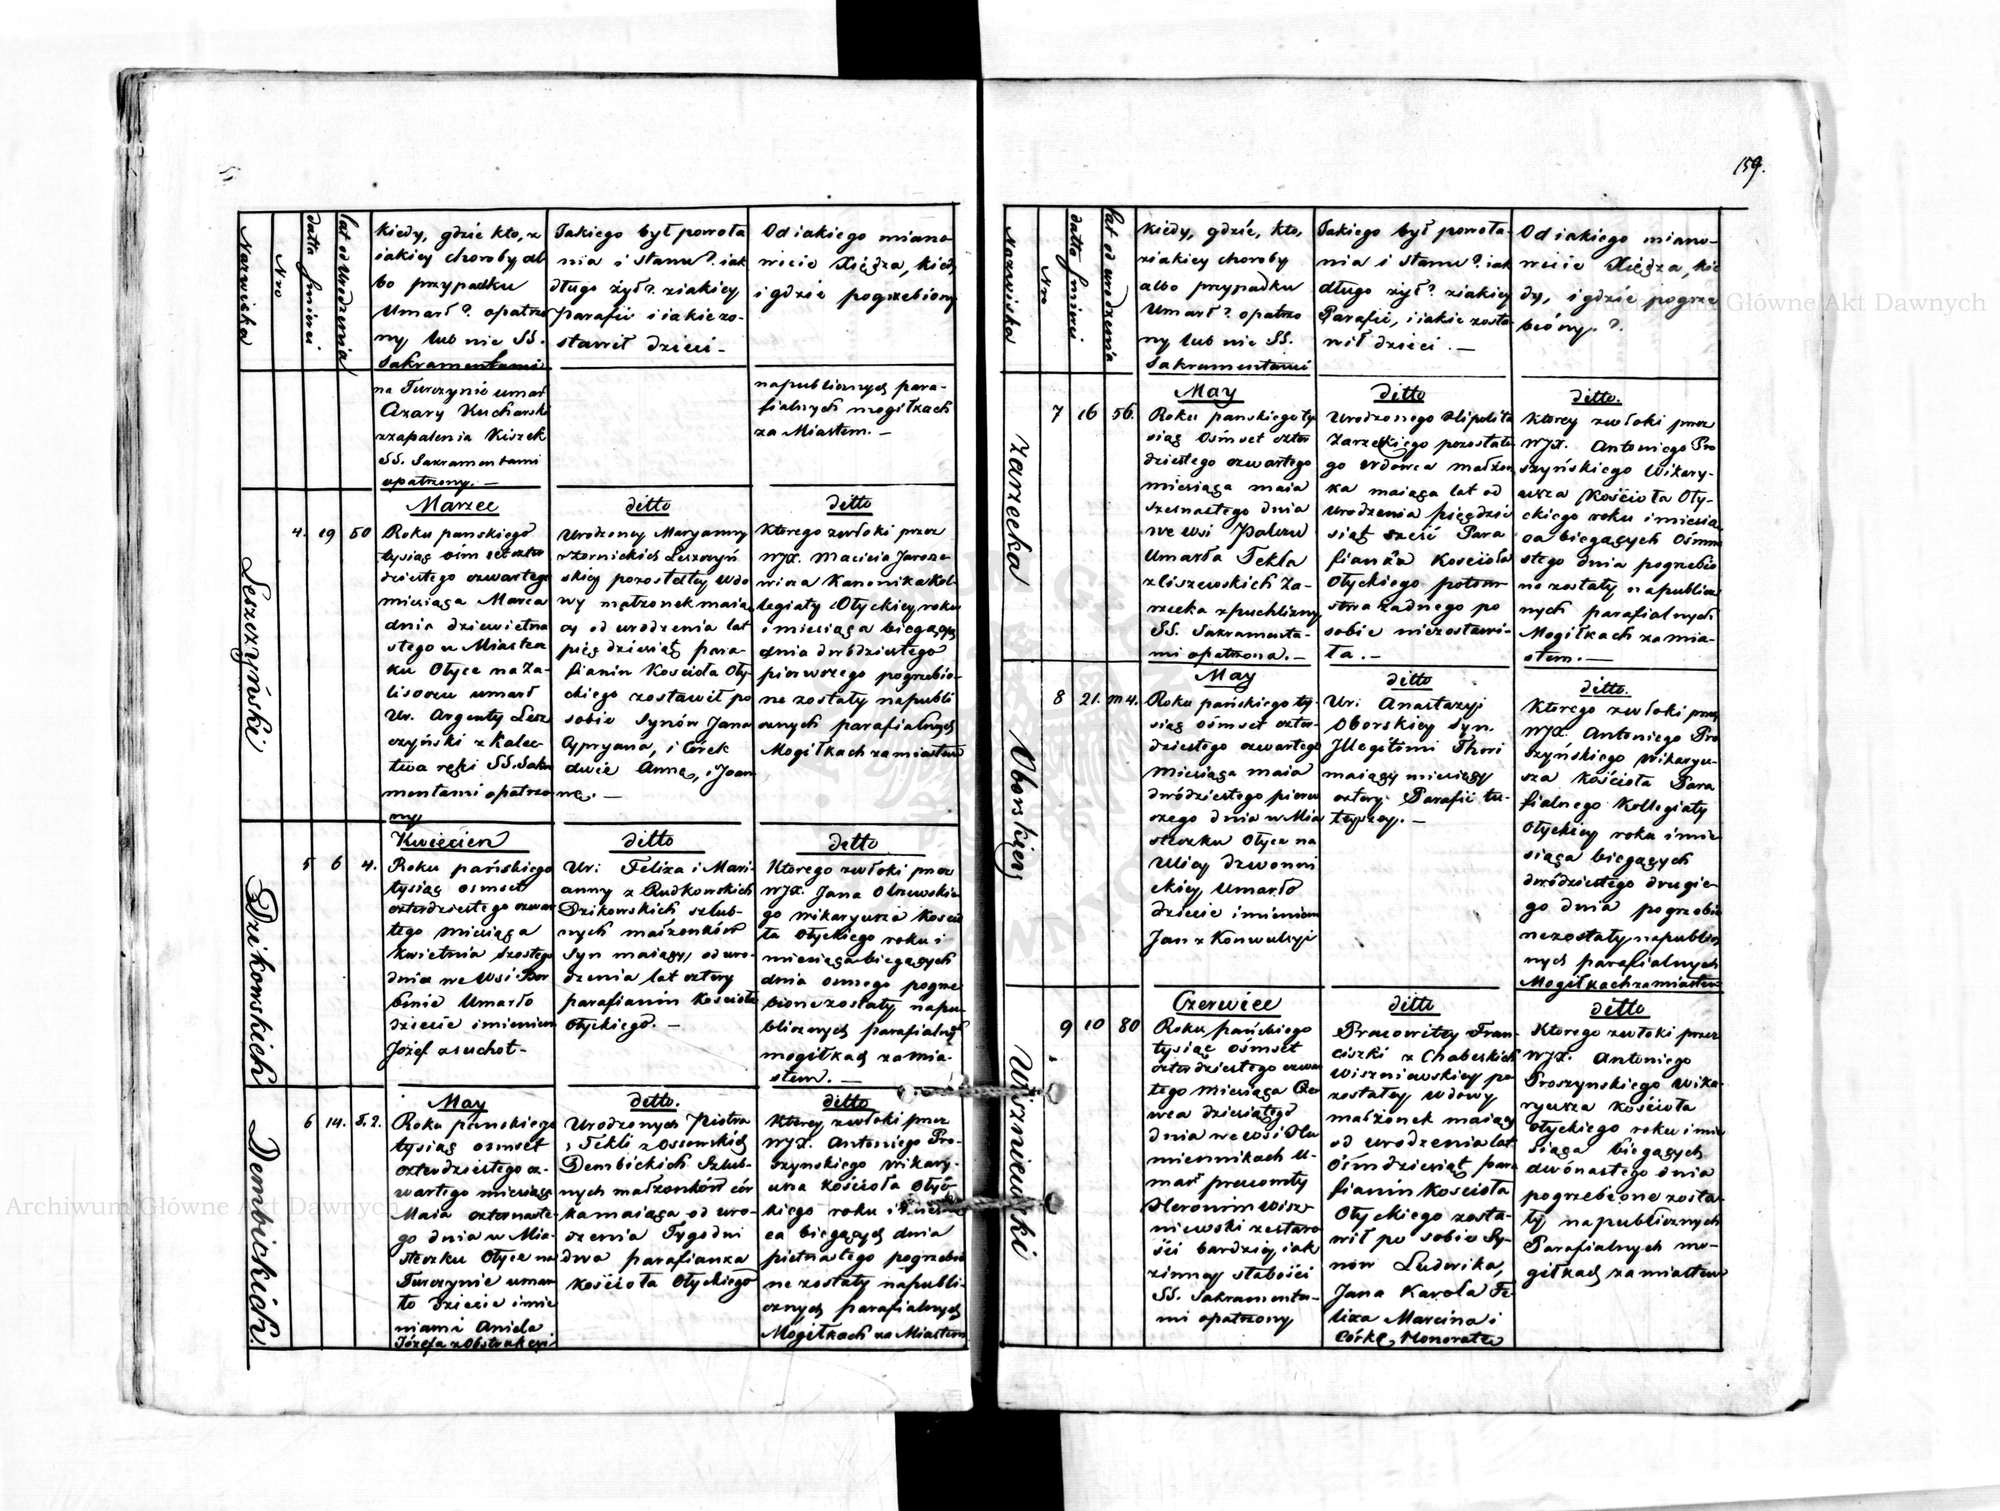 159.
Nazwiska
Nro
datta śmierci
lat od urodzenia
kiedy, gdzie kto, z
iakiey choroby al-
bo przypadku
Umarł? opatrzo
ny lub nie SS.
Sakramentami
Jakiego był powoła
nia i stanu? iak
długo żył? z iakiey
parafii i iakie zo-
stawił dzieci -
Od iakiego miano-
wicie Xiędza, kiedy
i gdzie pogrzebiony
na Turczynie umarł
Azary Kucharski
z zapalenia Kiszek
SS. Sakramentami
opatrzony. —
na publicznych para-
fialnych mogiłkach
za Miastem. —
Leszczyński
4. 19 50
Marzec
Roku panskiego
tysiąc osm set czter
dziestego czwartego
miesiąca Marca
dnia dziewietna
stego w Miastecz
ku Ołyce na Za-
lisoczu umarł
Ur. Argenty Lesz
czyński z Kalec-
twa ręki SS. Sakra
mentami opatrzo
ny
ditto
Urodzoney Maryanny
z Zornickich Leszczyń
skiey pozostałey wdo
wy małzonek maią
cy od urodzenia lat
pięć dziesiąt para-
fianin Kościoła Oły-
ckiego zostawił po
sobie Synów Jana
Cypryana, i Córek
dwie Annę, i Joan
nę. —
ditto
Ktorego zwłoki przez
WJX. Macieia Jaroze-
wicza Kanonika Kol-
legiaty Ołyckiey, roku
i miesiąca biegących
dnia dwódziestego
pierwszego pogrzebio-
ne zostały na publi
cznych parafialnych
Mogiłkach za miastem
Dzikowskich
5 6 4.
Kwiecien
Roku pańskiego
tysiąc osmset
czterdziestego czwar
tego miesiąca
kwietnia szostego
dnia we Wsi Dor
binie Umarło
dziecie imieniem
Józef z suchot -
ditto
Ur: Felixa i Mari-
anny z Rudkowskich
Dzikowskich szlub-
nych małżonków
Syn maiący od uro-
dzenia lat cztery
parafianin kościoła
Ołyckiego. —
ditto
Ktorego zwłoki przez
WJX. Jana Olszewskie-
go wikaryusza kościo
ła Ołyckiego roku i
miesiąca biegących
dnia osmego pogrze
bione zostały na pu-
blicznych parafialnych
mogiłkach za mia-
stem. —
Dembickich
6 14. t. 2.
May
Roku pańskiego
tysiąc osmset
czterdziestego cz-
wartego miesiąca
Maia czternaste-
go dnia w Mia-
steczku Ołyce na
Turczynie umar
ło dziecie imie
niami Aniela
Józefa z Obstrukcyi
ditto.
Urodzonych Piotra
i Tekli z Osiowskich
Dembickich Szlub-
nych małzonków cór
ka maiąca od uro-
dzenia Tygodni
dwa parafianka
kościoła Ołyckiego
ditto
Ktorey zwłoki przez
WJX. Antoniego Pro-
szynskiego wikary-
usza kościoła Ołyc-
kiego roku i miesią
ca biegących dnia
pietnastego pogrzebio
ne zostały na publi-
cznych parafialnych
Mogiłkach za Miastem
Nazwiska
Nro
datta śmierci
lat od urodzenia
kiedy, gdzie, kto,
z iakiey choroby
albo przypadku
Umarł? opatrzo
ny lub nie SS.
Sakramentami
Jakiego był powoła-
nia i stanu? iak
długo żył? z iakiey
Parafii, i iakie zosta
wił dzieci. —
Od iakiego miano-
wicie Xiędza, kie
dy, i gdzie pogrze
biony. ?
Zarzecka
7 16 56.
May
Roku panskiego ty
siąc Ośmset czter
dziestego czwartego
miesiąca maia
szesnastego dnia
we wsi Palczu
Umarła Tekla
z Liszewskich Za-
rzecka z puchlizny
SS. Sakramenta-
mi opatrzona. —
ditto
Urodzonego Hipolita
Zarzeckiego pozostałe
go wdowca małżon
ka maiąca lat od
Urodzenia pięćdzie
siąt sześć Para
fianka Kościoła
Ołyckiego potom
stwa żadnego po
sobie niezostawi-
ła. —
ditto.
Ktorey zwłoki przez
WJX. Antoniego Pro
szyńskiego Wikary-
usza Kościoła Oły-
ckiego roku i miesią
ca biegących Osmna
stego dnia pogrzebio
no zostały na publicz
nych parafialnych
Mogiłkach za mia-
stem. —
Oborskiey
8 21. m 4.
May
Roku pańskiego ty-
siąc ośmset czter-
dziestego czwartego
miesiąca maia
dwódziestego pierw
szego dnia w Mia
steczku Ołyce na
Ulicy dzwonni
ckiey Umarło
dziecie imieniem
Jan z Konwulsyi
ditto
Ur: Anastazyi
Oborskiey syn.
Illegitimi Thori
maiący miesięcy
cztery. Parafii tu-
teyszey. —
ditto.
Ktorego zwłoki przez
WJX. Antoniego Pro
szyńskiego wikaryu-
sza Kościoła Para
fialnego Kollegiaty
Ołyckiey roku i mie-
siąca biegących
dwódziestego drugie-
go dnia pogrzebio
ne zostały na publicz
nych parafialnych
Mogiłkach za miastem
Wiszniewski
9 10 80
Czerwiec
Roku pańskiego
tysiąc ośmset
czterdziestego czwar
tego Miesiąca Czer
wca dziesiątego
dnia we wsi Ha
miennikach U-
marł pracowity
Hieronim Wisz-
niewski ze staro-
ści bardziey iak
z inney słabości
SS. Sakramenta-
mi opatrzony
ditto
Pracowitey Fran-
ciszki z Chaberskich
Wiszniewskiey po
zostałey wdowy
małżonek maiący
od urodzenia lat
Ośmdziesiąt para
fianin Kościoła
Ołyckiego zosta-
wił po sobie Sy-
nów Ludwika,
Jana Karola Fe
lixa Marcina i
Córkę, Honoratę
ditto
Ktorego zwłoki przez
WJX. Antoniego
Proszynskiego Wika-
ryusza Kościoła
Ołyckiego roku i mie
siąca biegących
dwónastego dnia
pogrzebione zosta-
ły na publicznych
Parafialnych mo-
giłkach za miastem
Archiwum Główne Akt Dawnych
Archiwum Główne Akt Dawnych